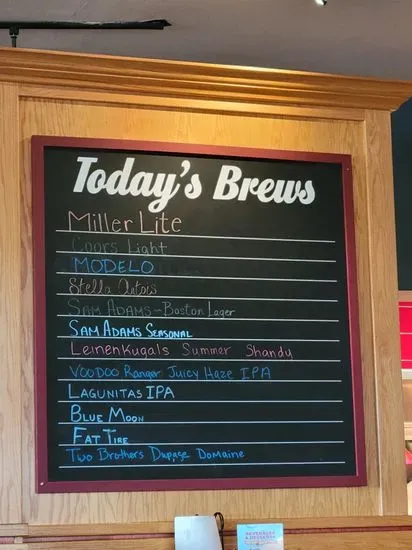 Today's Brews
Miller Lite
Coors Light
MODELO
Stella Artois
SAM ADAMS - Boston Lager
SAM ADAMS SEASONAL
Leinenkugals Summer Shandy
VOODOO Ranger Juicy Haze IPA
LAGUNITAS IPA
BLUE MOON
FAT TIRE
TWO BROTHERS DuPage Domaine